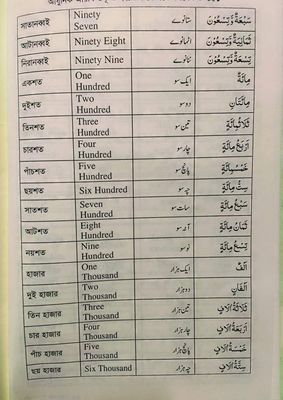 সাতানব্বই Ninety Seven ستانوے سَبْعَةٌ وَّتِسْعُوْنَ
আটানব্বই Ninety Eight اٹھانوے ثَمَانِيَةٌ وَّتِسْعُوْنَ
নিরানব্বই Ninety Nine ننانوے تِسْعَةٌ وَّتِسْعُوْنَ
একশত One Hundred ایک سو مِائَةٌ
দুইশত Two Hundred دو سو مِائَتَانِ
তিনশত Three Hundred تین سو ثَلَاثُمِائَةٍ
চারশত Four Hundred چار سو اَرْبَعُ مِائَةٍ
পাঁচশত Five Hundred پانچ سو خَمْسُمِائَةٍ
ছয়শত Six Hundred چھ سو سِتُّ مِائَةٍ
সাতশত Seven Hundred سات سو سَبْعُ مِائَةٍ
আটশত Eight Hundred آٹھ سو ثَمَانُ مِائَةٍ
নয়শত Nine Hundred نو سو تِسْعُ مِائَةٍ
হাজার One Thousand ایک ہزار اَلْفٌ
দুই হাজার Two Thousand دو ہزار اَلْفَانِ
তিন হাজার Three Thousand تین ہزار ثَلَاثَةُ اٰلَافٍ
চার হাজার Four Thousand چار ہزار اَرْبَعَةُ اٰلَافٍ
পাঁচ হাজার Five Thousand پانچ ہزار خَمْسَةُ اٰلَافٍ
ছয় হাজার Six Thousand چھ ہزار سِتَّةُ اٰلَافٍ